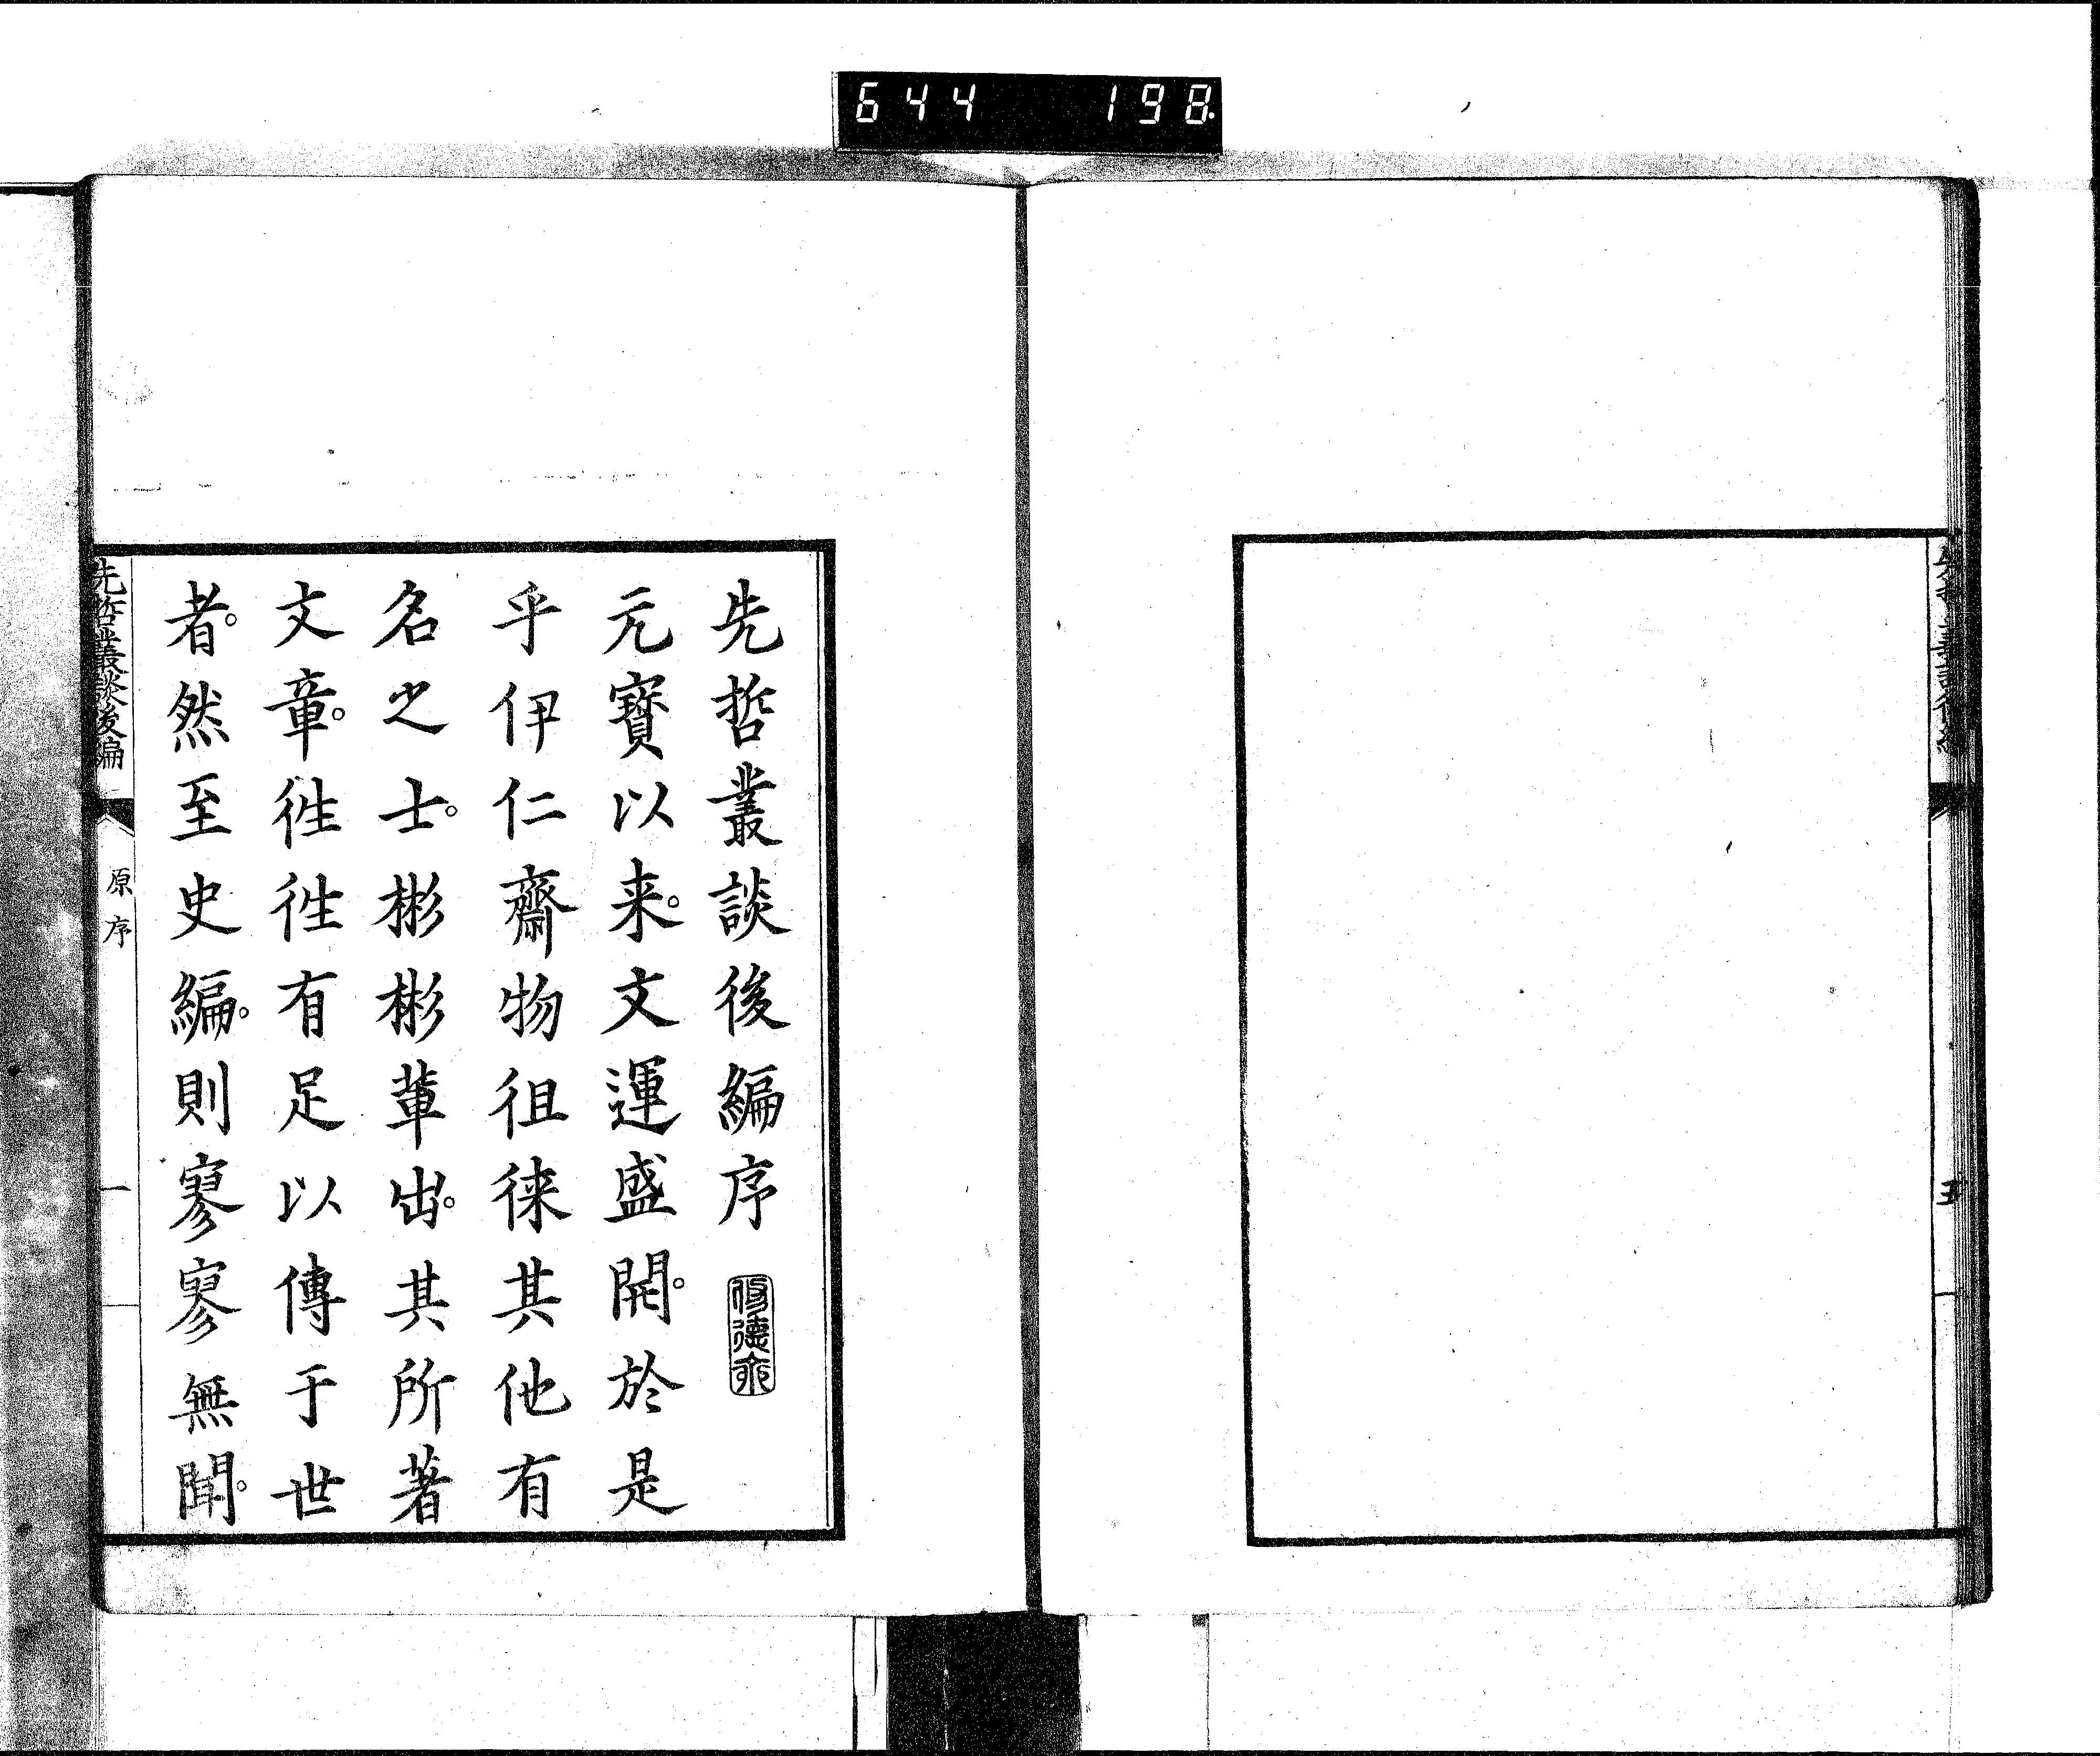 644 198
五
先哲叢談後編序
元寶以来。文運盛開。於是
乎伊仁齋物徂徠其他有
名之士。彬彬輩出。其所著
文章。徃徃有足以傳于世
者。然至史編。則寥寥無聞。
先哲叢談後編
原序
一